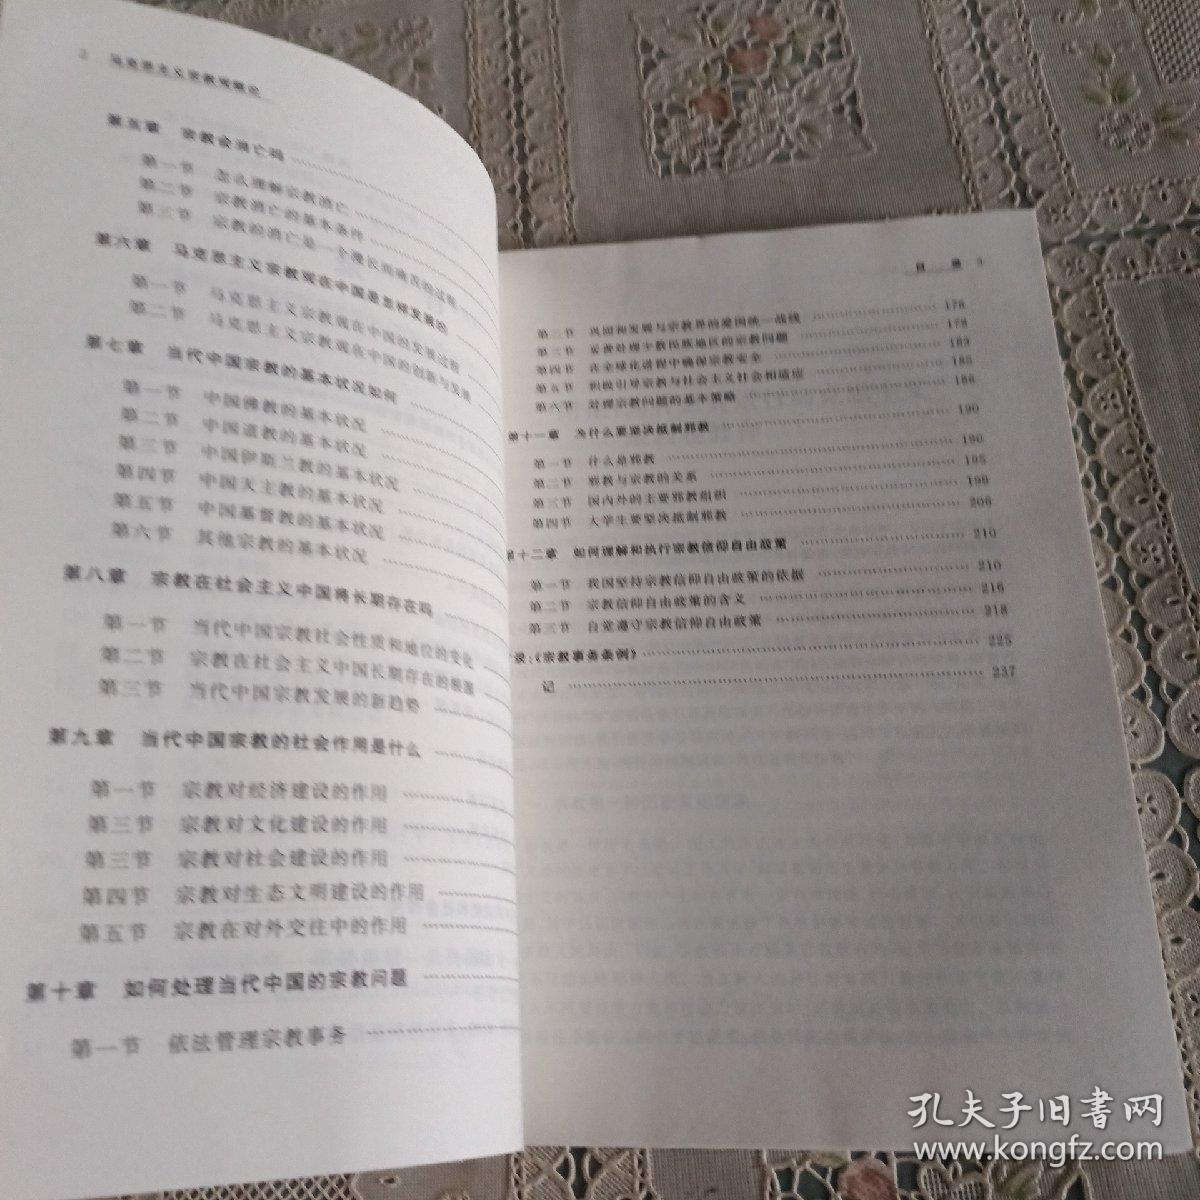 2 马克思主义宗教观概论
第五章 宗教会消亡吗
第一节 怎么理解宗教消亡
第二节 宗教消亡的基本条件
第三节 宗教的消亡是一个漫长而痛苦的过程
第六章 马克思主义宗教观在中国是怎样发展的
第一节 马克思主义宗教观在中国的发展过程
第二节 马克思主义宗教观在中国的创新与发展
第七章 当代中国宗教的基本状况如何
第一节 中国佛教的基本状况
第二节 中国道教的基本状况
第三节 中国伊斯兰教的基本状况
第四节 中国天主教的基本状况
第五节 中国基督教的基本状况
第六节 其他宗教的基本状况
第八章 宗教在社会主义中国将长期存在吗
第一节 当代中国宗教社会性质和地位的变化
第二节 宗教在社会主义中国长期存在的根源
第三节 当代中国宗教发展的新趋势
第九章 当代中国宗教的社会作用是什么
第一节 宗教对经济建设的作用
第三节 宗教对文化建设的作用
第三节 宗教对社会建设的作用
第四节 宗教对生态文明建设的作用
第五节 宗教在对外交往中的作用
第十章 如何处理当代中国的宗教问题
第一节 依法管理宗教事务
目 录 3
第二节 巩固和发展与宗教界的爱国统一战线 176
第三节 妥善处理少数民族地区的宗教问题 178
第四节 在全球化进程中确保宗教安全 183
第五节 积极引导宗教与社会主义社会相适应 185
第六节 处理宗教问题的基本策略 186
第十一章 为什么要坚决抵制邪教 190
第一节 什么是邪教 190
第二节 邪教与宗教的关系 195
第三节 国内外的主要邪教组织 199
第四节 大学生要坚决抵制邪教 206
第十二章 如何理解和执行宗教信仰自由政策 210
第一节 我国坚持宗教信仰自由政策的依据 210
第二节 宗教信仰自由政策的含义 216
第三节 自觉遵守宗教信仰自由政策 218
录:《宗教事务条例》 225
记 237
孔夫子旧书网
www.kongfz.com